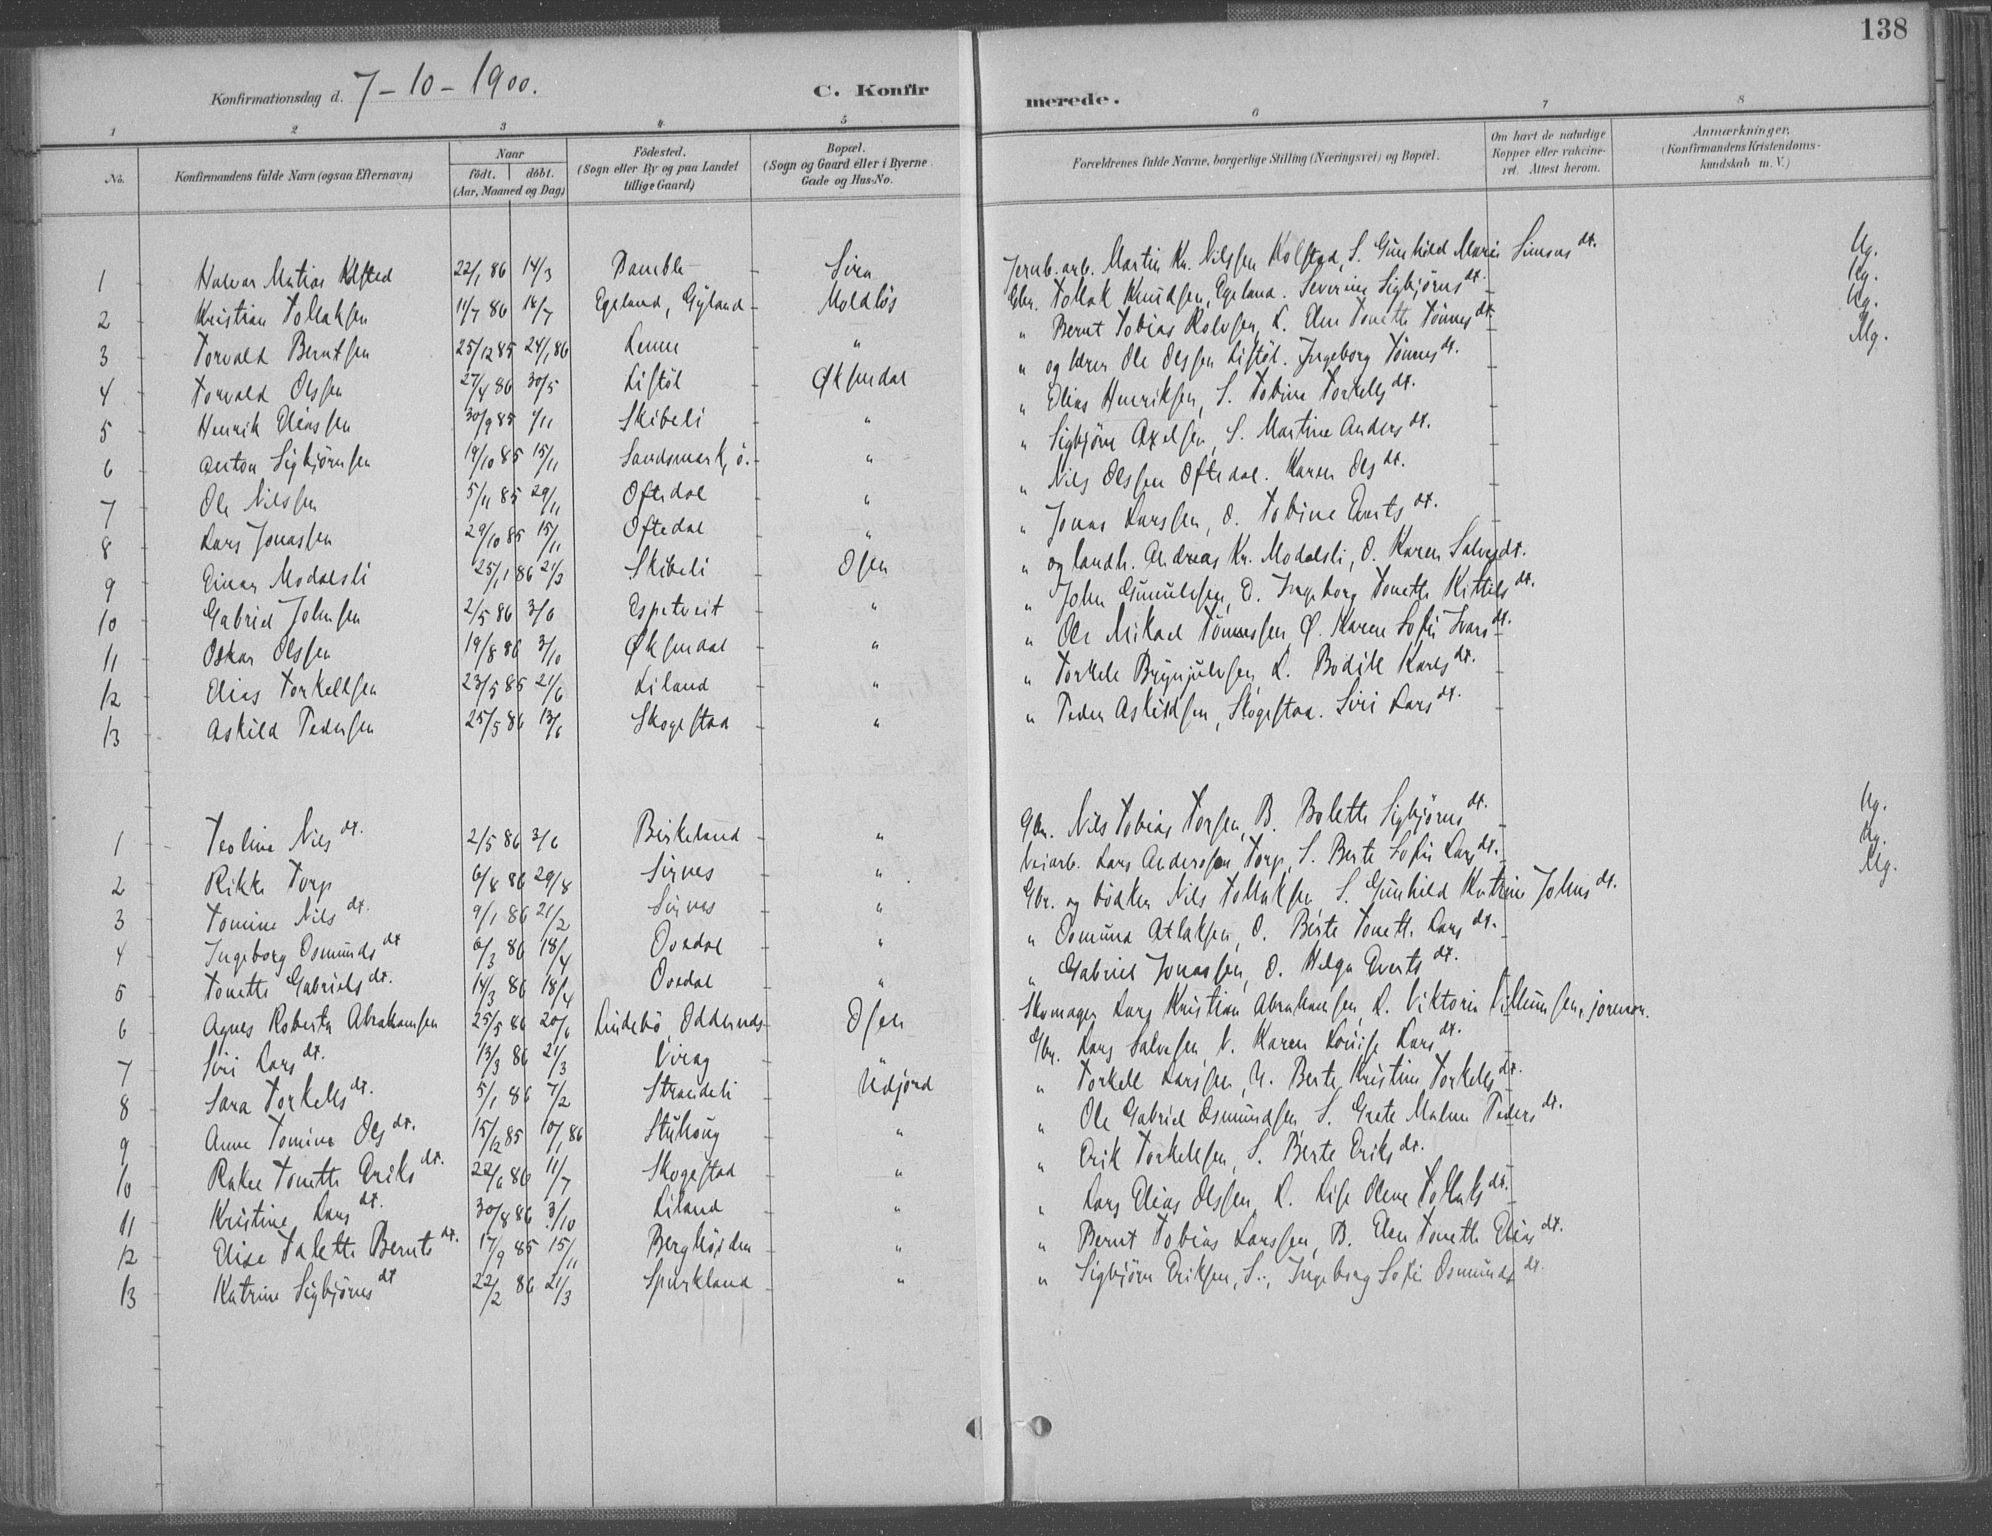 138
Konfirmationsdag d. 7-10-1900.
C. Konfir
merede.
1 2 3 4 5 6 7 8
No.
Konfirmandens fulde Navn (ogsaa Efternavn)
Naar
født. døbt.
(Aar, Maaned og Dag)
Fødested.
(Sogn eller By og paa Landet
tillige Gaard)
Bopæl.
(Sogn og Gaard eller i Byerne
Gade og Hus-No.
Forældrenes fulde Navne, borgerlige Stilling (Næringsvei) og Bopæl.
Om havt de naturlige
Kopper eller vaccine-
ret. Attest herom.
Anmærkninger,
(Konfirmandens Kristendoms-
kundskab m. V.)
1 Halvar Matias Kolstad 22/1 86 14/3 Bamble Sira Jernb. arb. Martin Kr. Nilssen Kolstad, S. Gunhild Marie Simons dt. Ug.
2 Kristian Tollaksen 11/7 86 18/7 Egeland, Gyland Moldløs Gbr. Tollak Knudsen, Egeland. Severine Sigbjørns dt. Ug.
3 Torvald Berntsen 25/12 85 24/1 86 Lenne " " Bernt Tobias Rolvsen, L. Elen Tonette Tønnes dt. Ug.
4 Torvald Olssen 27/4 86 30/5 Listøl Øksendal " og lærer Ole Olssen Listøl. Ingeborg Tønnes dt. Mg.
5 Henrik Eliassen 30/9 85 1/11 Skibeli " " Elias Henriksen, S. Tobine Torkells dt.
6 Anton Sigbjørnsen 19/10 85 15/11 Sandsmark, ö. " " Sigbjørn Axelsen, S. Martine Anders dt.
7 Ole Nilssen 5/11 85 29/11 Oftedal " " Nils Olssen Oftedal. Karen Ols dt.
8 Lars Jonassen 29/10 85 15/11 Oftedal " " Jonas Larssen, O. Tobine Everts dt.
9 Einar Modalsli 25/1 86 21/3 Skibeli Osen " og landh. Andreas Kr. Modalsli, O. Karen Salves dt.
10 Gabriel Johnsen 2/5 86 3/6 Espetveit " " John Gunnulvsen, E. Ingeborg Tonette Kittils dt.
11 Oskar Olssen 19/8 86 3/10 Øksendal " " Ole Mikael Tønnessen, Ø. Karen Sofie Ivars dt.
12 Elias Torkellsen 23/5 85 21/6 Liland " " Torkell Brynjulvsen, L. Bodill Karls dt.
13 Askild Pedersen 25/5 86 13/6 Skogestad " " Peder Askildsen, Skogestad. Siri Lars dt.
1 Teoline Nils dt. 2/5 86 3/6 Birkeland " Gbr. Nils Tobias Torsen, B. Bolette Sigbjørns dt. Ug.
2 Rikke Torp 6/8 86 29/8 Sirnes " Veiarb. Lars Anderssen Torp, S. Berte Sofie Lars dt. Ug.
3 Tomine Nils dt. 9/1 86 21/2 Sirnes " Gbr. og bødker Nils Tollaksen, S. Gunhild Katrine Johns dt. Mg.
4 Ingeborg Osmunds dt 6/3 86 18/4 Ovedal " " Osmund Atlaksen, O. Berte Tonette Lars dt.
5 Tonette Gabriels dt. 14/3 86 18/4 Ovedal " " Gabriel Jonassen, O. Helga Everts dt.
6 Agnes Roberta Abrahamsen 25/5 86 20/6 Lindebø, Oddernes Osen Skomager Lars Kristian Abrahamsen, L. Viktoria Villumsen, jormor.
7 Siri Lars dt. 13/3 86 21/3 Virag " Gbr. Lars Salvesen, V. Karen Lovise Lars dt.
8 Sara Torkells dt. 5/1 86 7/2 Strandeli Udjord " Torkell Larssen, U. Berte Kristine Torkells dt.
9 Anne Tomine Ols dt. 15/12 85 10/1 86 Stuhoug " " Ole Gabriel Osmundsen, S. Grete Malene Peders dt.
10 Rakel Tonette Eriks dt. 22/6 86 11/7 Skogestad " " Erik Torkellsen, S. Berte Eriks dt.
11 Kristine Lars dt. 30/8 86 3/10 Liland " " Lars Elias Olssen, L. Lise Olene Tollaks dt.
12 Elise Talette Bernts dt. 17/9 85 15/11 Berghørden " " Bernt Tobias Larssen, B. Elen Tonette Elias dt.
13 Katrine Sigbjørns dt 22/2 86 21/3 Spurkland " " Sigbjørn Eriksen, S., Ingeborg Sofie Osmunds dt.